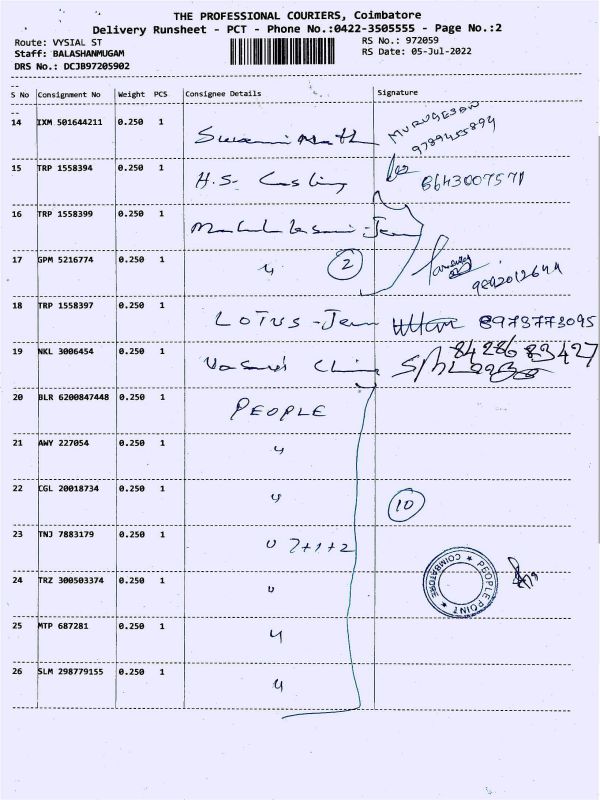 THE PROFESSIONAL COURIERS, Coimbatore
Delivery Runsheet - PCT - Phone No.:0422-3505555 - Page No.:2
Route: VYSIAL ST
RS No.: 972059
Staff: BALASHANMUGAM
RS Date: 05-Jul-2022
DRS No.: DCJB97205902
S No Consignment No Weight PCS Consignee Details Signature
14 IXM 501644211 0.250 1 MURUGESAN
9789455894
15 TRP 1558394 0.250 1 H.S. 8643007571
16 TRP 1558399 0.250 1
17 GPM 5216774 0.250 1 " 2
18 TRP 1558397 0.250 1 LOTUS - 8973773095
19 NKL 3006454 0.250 1 8428683427
20 BLR 6200847448 0.250 1 PEOPLE
21 AWY 227054 0.250 1 "
22 CGL 20018734 0.250 1 " 10
23 TNJ 7883179 0.250 1 " 7+1+2
24 TRZ 300503374 0.250 1 "
PEOPLE POINT ★ COIMBATORE ★
25 MTP 687281 0.250 1 "
26 SLM 298779155 0.250 1 "